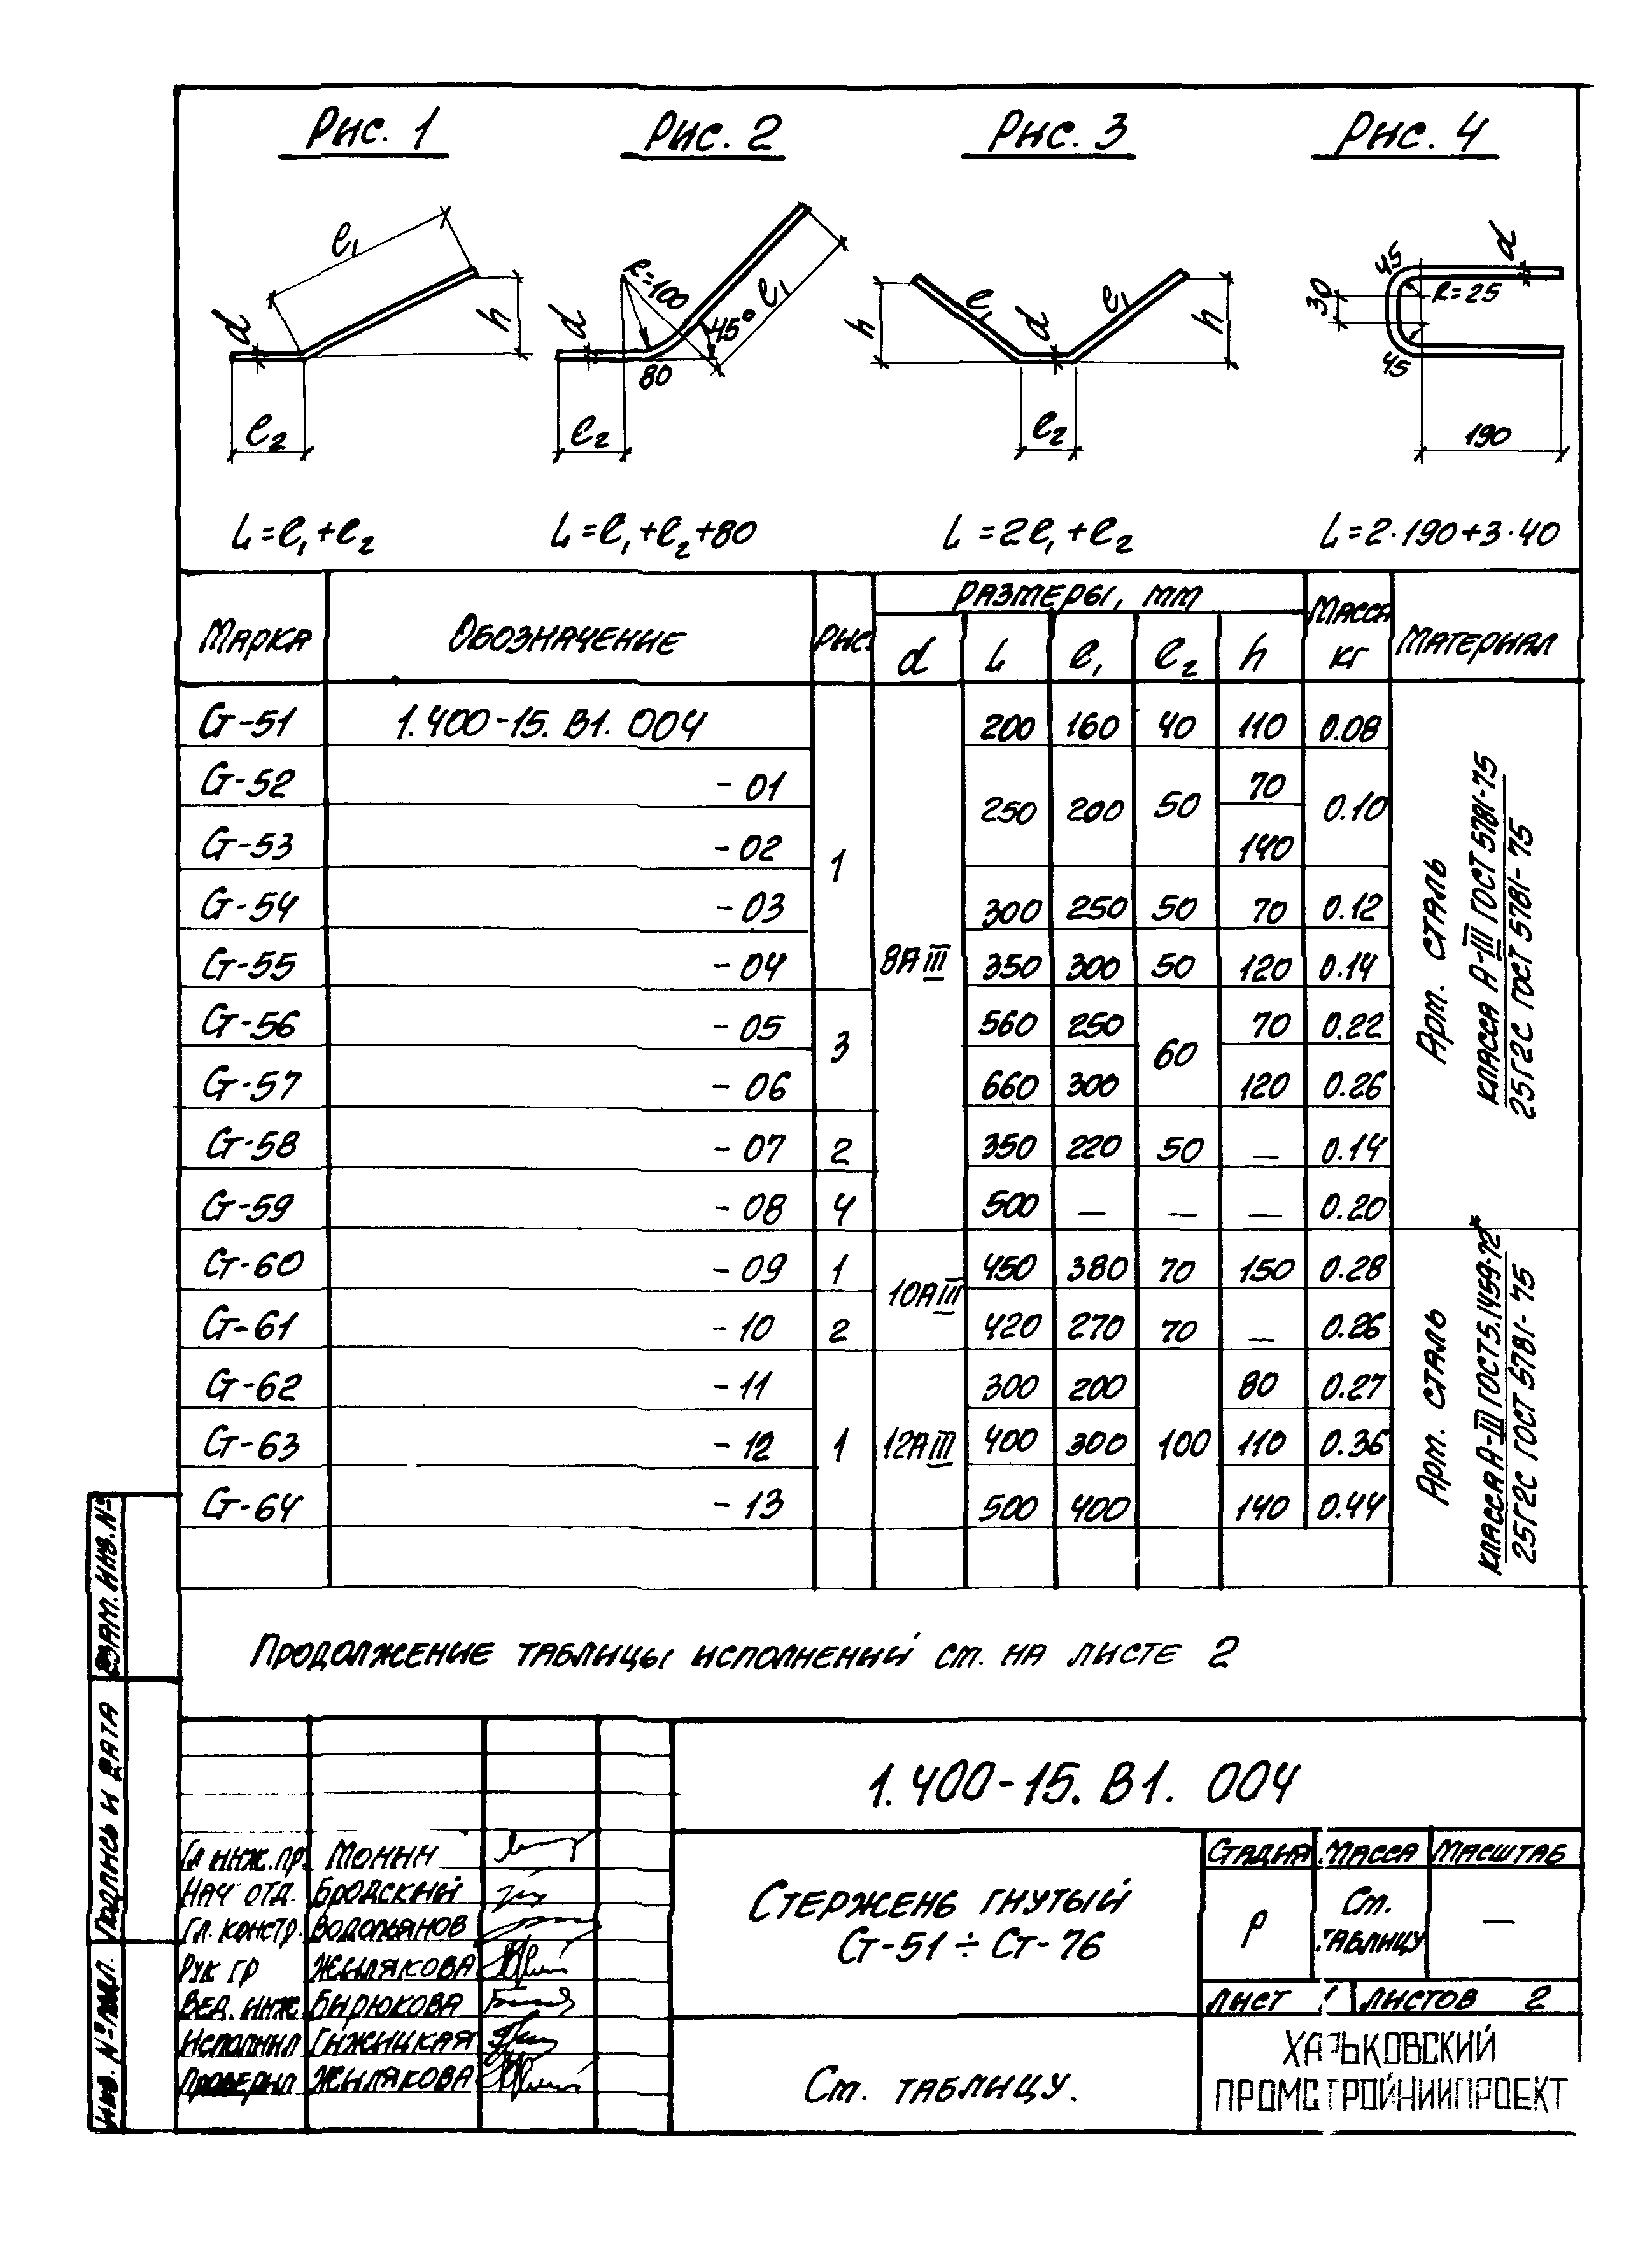 Рис. 1 Рис. 2 Рис. 3 Рис. 4
ℓ₁ d h ℓ₂
R=100 ℓ₁ 45° d 80 ℓ₂
h ℓ₁ d ℓ₁ h ℓ₂
45 d R=25 30 45 190
L=ℓ₁+ℓ₂ L=ℓ₁+ℓ₂+80 L=2ℓ₁+ℓ₂ L=2·190+3·40
Марка Обозначение Рис. Размеры, мм Масса кг Материал
d L ℓ₁ ℓ₂ h
Ст-51 1.400-15.В1.004 1 8АIII 200 160 40 110 0.08
Ст-52 -01 250 200 50 70 0.10
Ст-53 -02 140
Ст-54 -03 300 250 50 70 0.12
Ст-55 -04 350 300 50 120 0.14
Ст-56 -05 3 560 250 60 70 0.22
Ст-57 -06 660 300 120 0.26
Ст-58 -07 2 350 220 50 — 0.14
Ст-59 -08 4 500 — — — 0.20
Ст-60 -09 1 10АIII 450 380 70 150 0.28
Ст-61 -10 2 420 270 70 — 0.26
Ст-62 -11 1 12АIII 300 200 100 80 0.27
Ст-63 -12 400 300 110 0.36
Ст-64 -13 500 400 140 0.44
Арм. сталь
класса А-III ГОСТ 5781-75
25Г2С ГОСТ 5781-75
Арм. сталь
класса А-III ГОСТ 5.1459-72*
25Г2С ГОСТ 5781-75
Продолжение таблицы исполнений см. на листе 2
Взам. инв. №
Подпись и дата
Инв. № подл.
1.400-15.В1.004
Гл инж. пр. Монин
Нач отд. Бродский
Гл. констр. Водопьянов
Рук гр Жилякова
Вед. инж Бирюкова
Исполнил Гижицкая
Проверил Жилякова
Стержень гнутый
Ст-51÷Ст-76
Стадия Масса Масштаб
Р См. таблицу —
Лист 1 Листов 2
См. таблицу.
ХАРЬКОВСКИЙ
ПРОМСТРОЙНИИПРОЕКТ